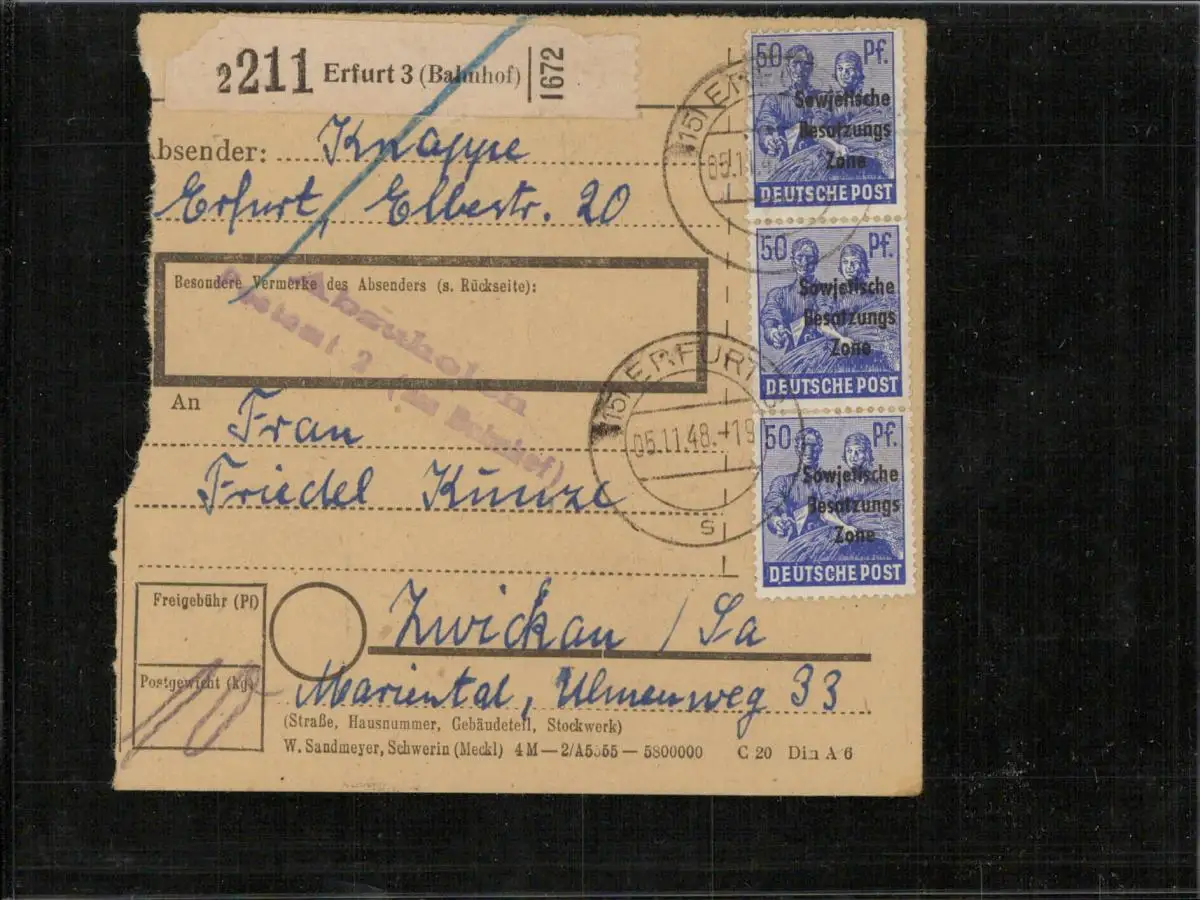 2211 Erfurt 3 (Bahnhof) 1672
bsender: Knappe
Erfurt, Elbestr. 20
Besondere Vermerke des Absenders (s. Rückseite):
Abzuholen
Postamt 2 (am Bahnhof)
An
Frau
Friedel Kunze
Zwickau / Sa
Mariental, Ulmenweg 33
(Straße, Hausnummer, Gebäudeteil, Stockwerk)
W. Sandmeyer, Schwerin (Meckl) 4 M — 2/A5355 — 5800000 C 20 Din A 6
Freigebühr (Pf)
Postgewicht (kg)
10
50 Pf.
Sowjetische
Besatzungs
Zone
DEUTSCHE POST
50 Pf.
Sowjetische
Besatzungs
Zone
DEUTSCHE POST
50 Pf.
Sowjetische
Besatzungs
Zone
DEUTSCHE POST
(15) ER
05.11
(15) ERFURT
05.11.48.-19
s